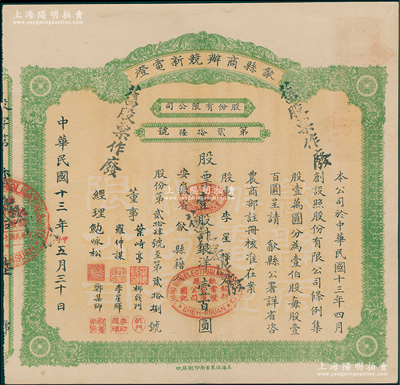 上海阳明拍卖
www.yangmingauction.com
歙縣商辦競新電燈
股份有限公司
第貳拾陸號
舊股票作廢
舊股票作廢
本公司於中華民國十三年四月
創設照股份有限公司條例集
股壹萬圓分為壹伯股每股壹
百圓呈請 歙縣公署詳省咨
農商部註冊核准在案
股票壹股計銀洋壹百圓
股東李星
安徽省歙縣籍
股份第貳拾肆號至第貳拾捌號
董事
葉峙亭
羅仲謀
李星輝
鄭集師
經理 鮑詠松
中華民國十三年五月三十日